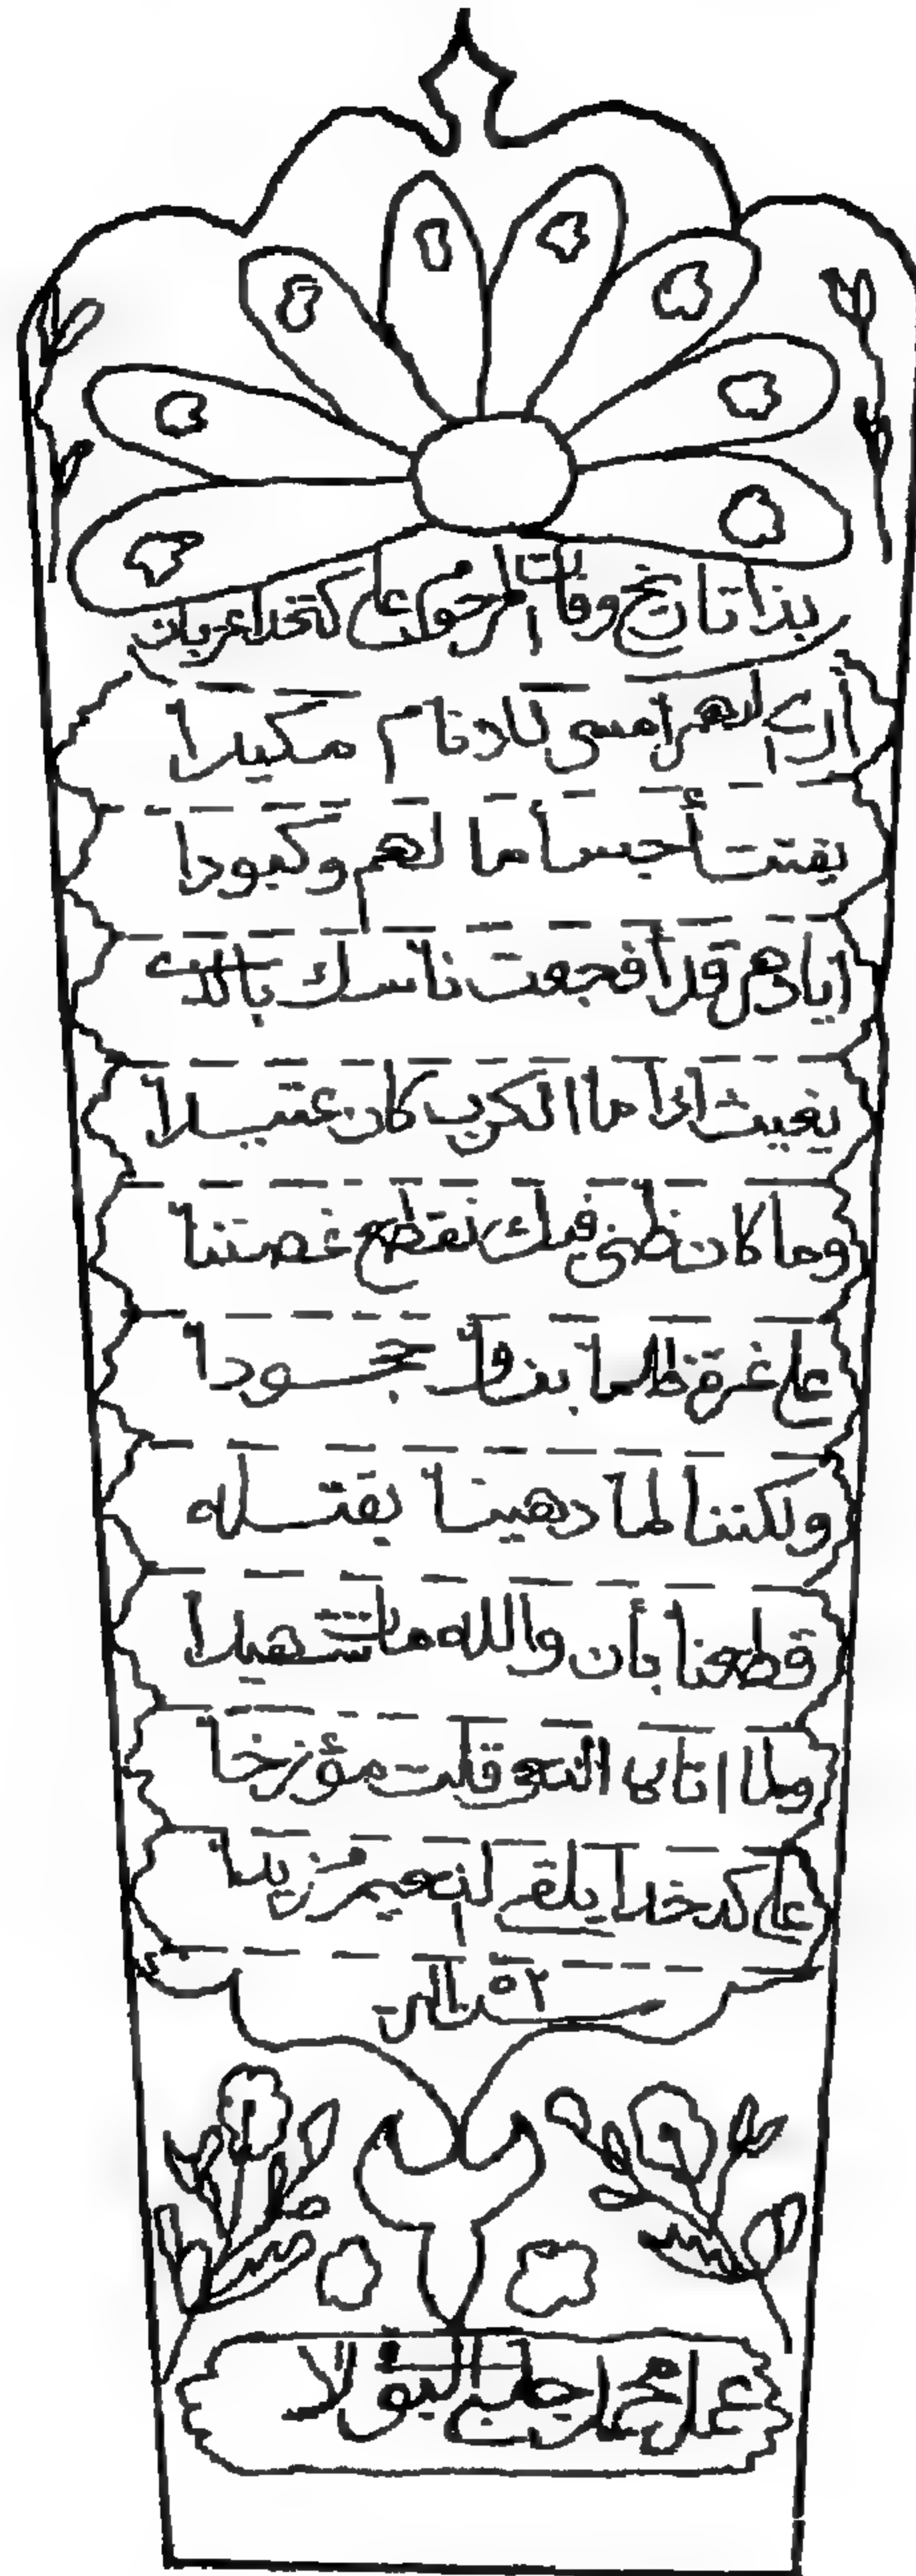 بذا تاريخ وفات المرحوم علي كتخدا عزبان
أرى الدهر امسى للادنام مكيدا
يفتت أجسأما لهم وكبودا
أيا دهر قد أفجعت ناسك بالذي
يغيث اذا ما الكرب كان عتيدا
وما كان ظني فيك تقطع غصننا
على غرة ظلما
ولكننا لما دهينا بقتله
قطعنا بأن والله مات شهيدا
ولما اتانا النعي قلت مؤرخا
علي كدخدا يلقى لنعيم مزيدا
عمل محمد جلبي